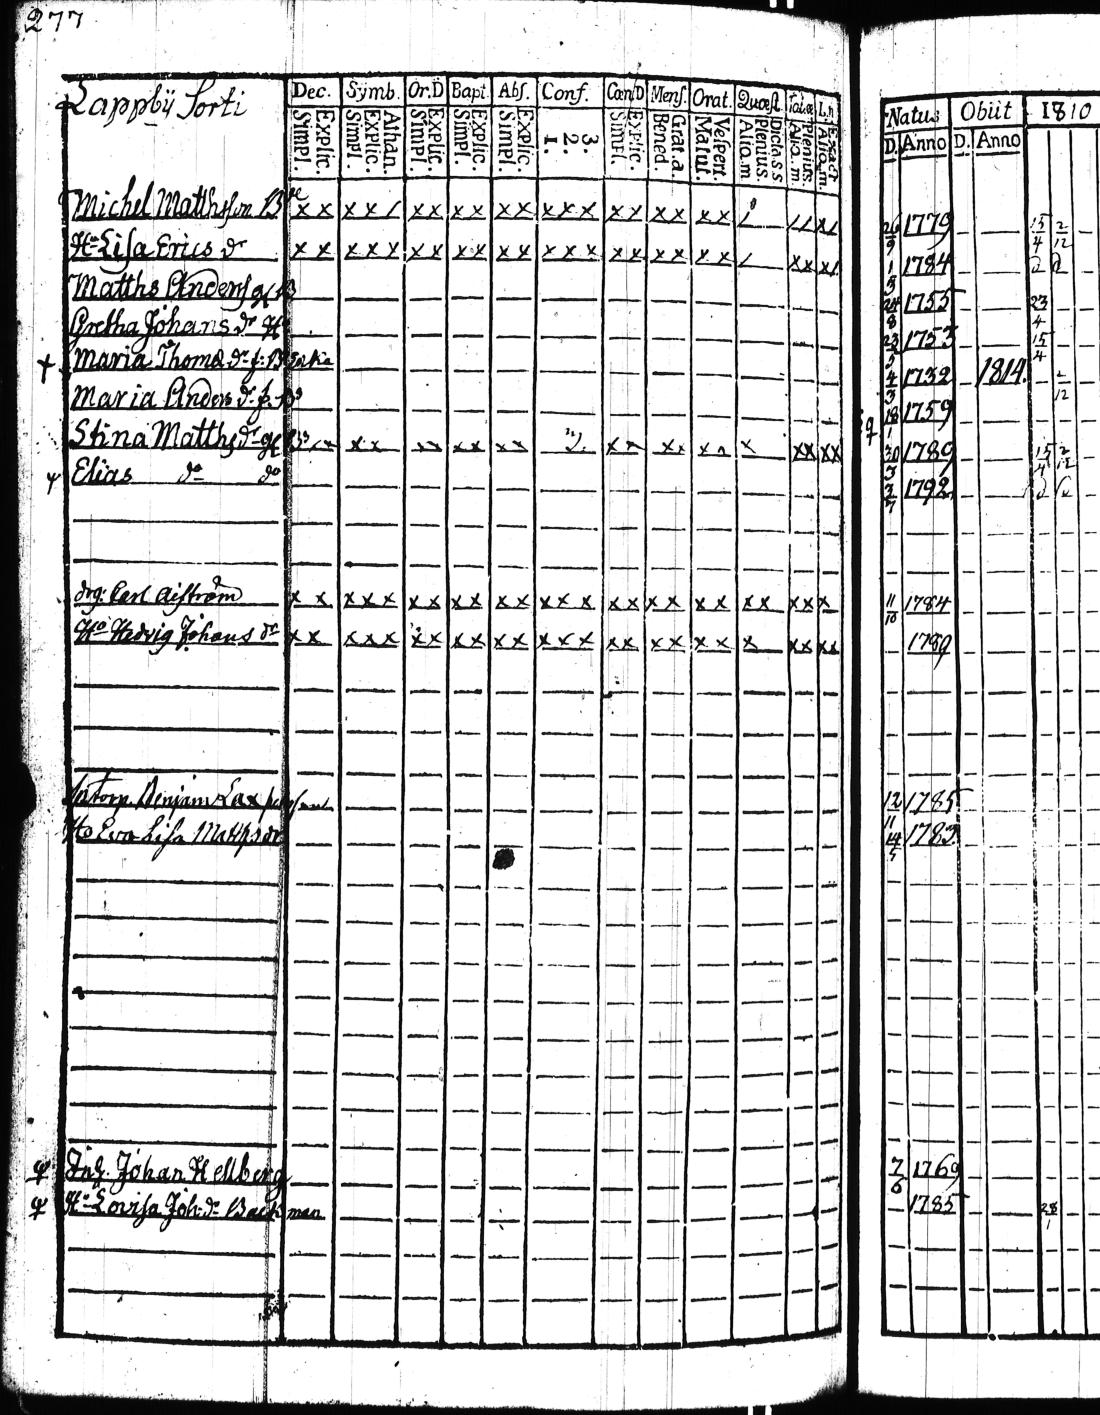 277
Lappbÿ Sorti
Dec. Symb. Or.D Bapt. Abs. Conf. Cœn.D Mens. Orat. Quæst. Tabæ L.n
Simpl. Explic. Simpl. Explic. Athan. Simpl. Explic. Simpl. Explic. Simpl. Explic. 1. 2. 3. Simpl. Explic. Bened. Grat.a. Matut. Vespert. Aliq.m Plenius. Dicta.s.s Aliq.m Plenius. Aliq.m Exact
Natus Obiit 1810
D. Anno D. Anno
Michel Matthsson 26/9 1779 15/4 2/12
H:o Lisa Erics dr 1/3 1784
Matths Anders 24/8 1755 23/4
Gretha Johans dr 23/5 1753 15/4
Maria Thomæ dr 4/3 1732 1814. 2/12
Maria Anders dr 18/1 1759
Stina Matths dr 30/3 1789 15/4 2/12
Elias do do 3/7 1792
drg: Carl Aiström 11/10 1784
H:o Hedvig Johans dr 1789
Benjam Lax 12/11 1785
Ho Eva Lisa Matths dr 14/5 1783
Inh. Johan Hellberg 7/6 1769
H:o Lovisa Joh: dr Backman 1785 28/1